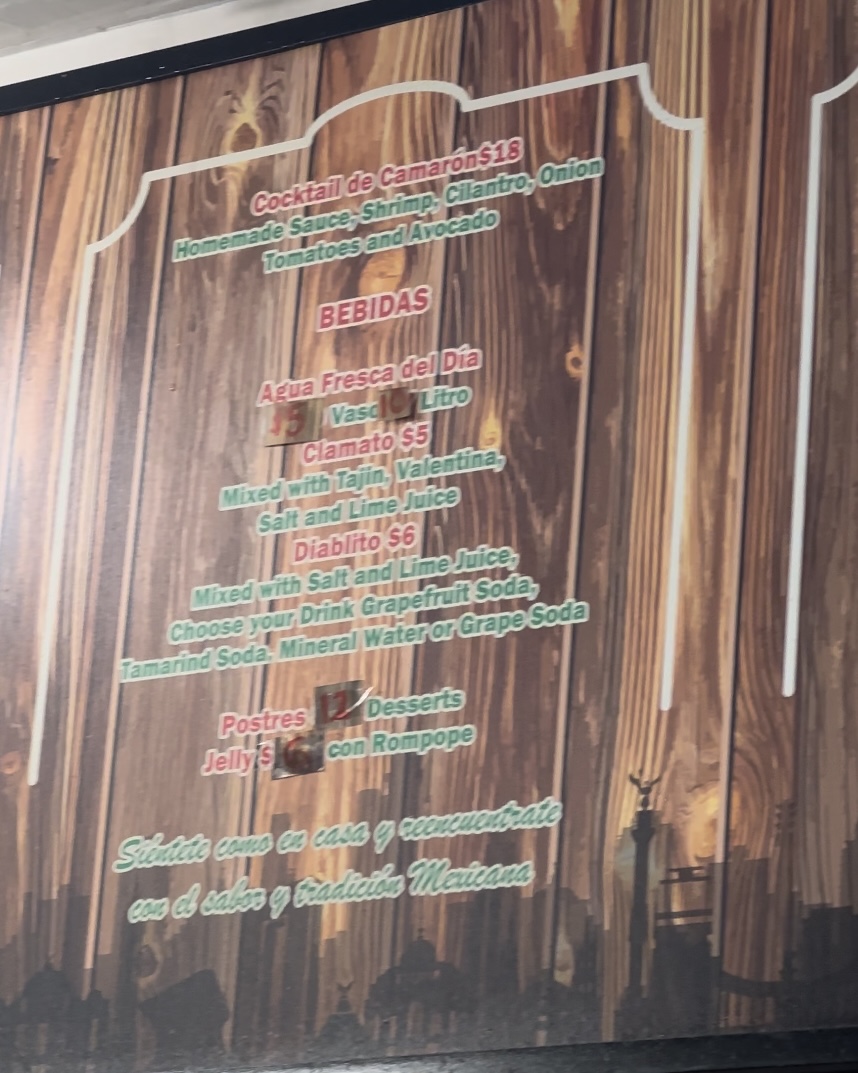 Cocktail de Camarón$18
Homemade Sauce, Shrimp, Cilantro, Onion
Tomatoes and Avocado
BEBIDAS
Agua Fresca del Día
$5 Vaso 10 Litro
Clamato $5
Mixed with Tajin, Valentina,
Salt and Lime Juice
Diablito $6
Mixed with Salt and Lime Juice,
Choose your Drink Grapefruit Soda,
Tamarind Soda, Mineral Water or Grape Soda
Postres 12 Desserts
Jelly $ con Rompope
Siéntete como en casa y reencuentrate
con el sabor y tradición Mexicana